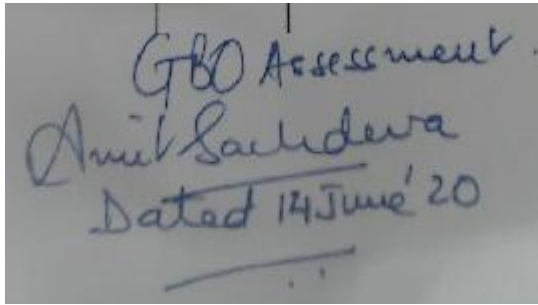 GBO Assessment.
Amit Sachdeva
Dated 14 June' 20